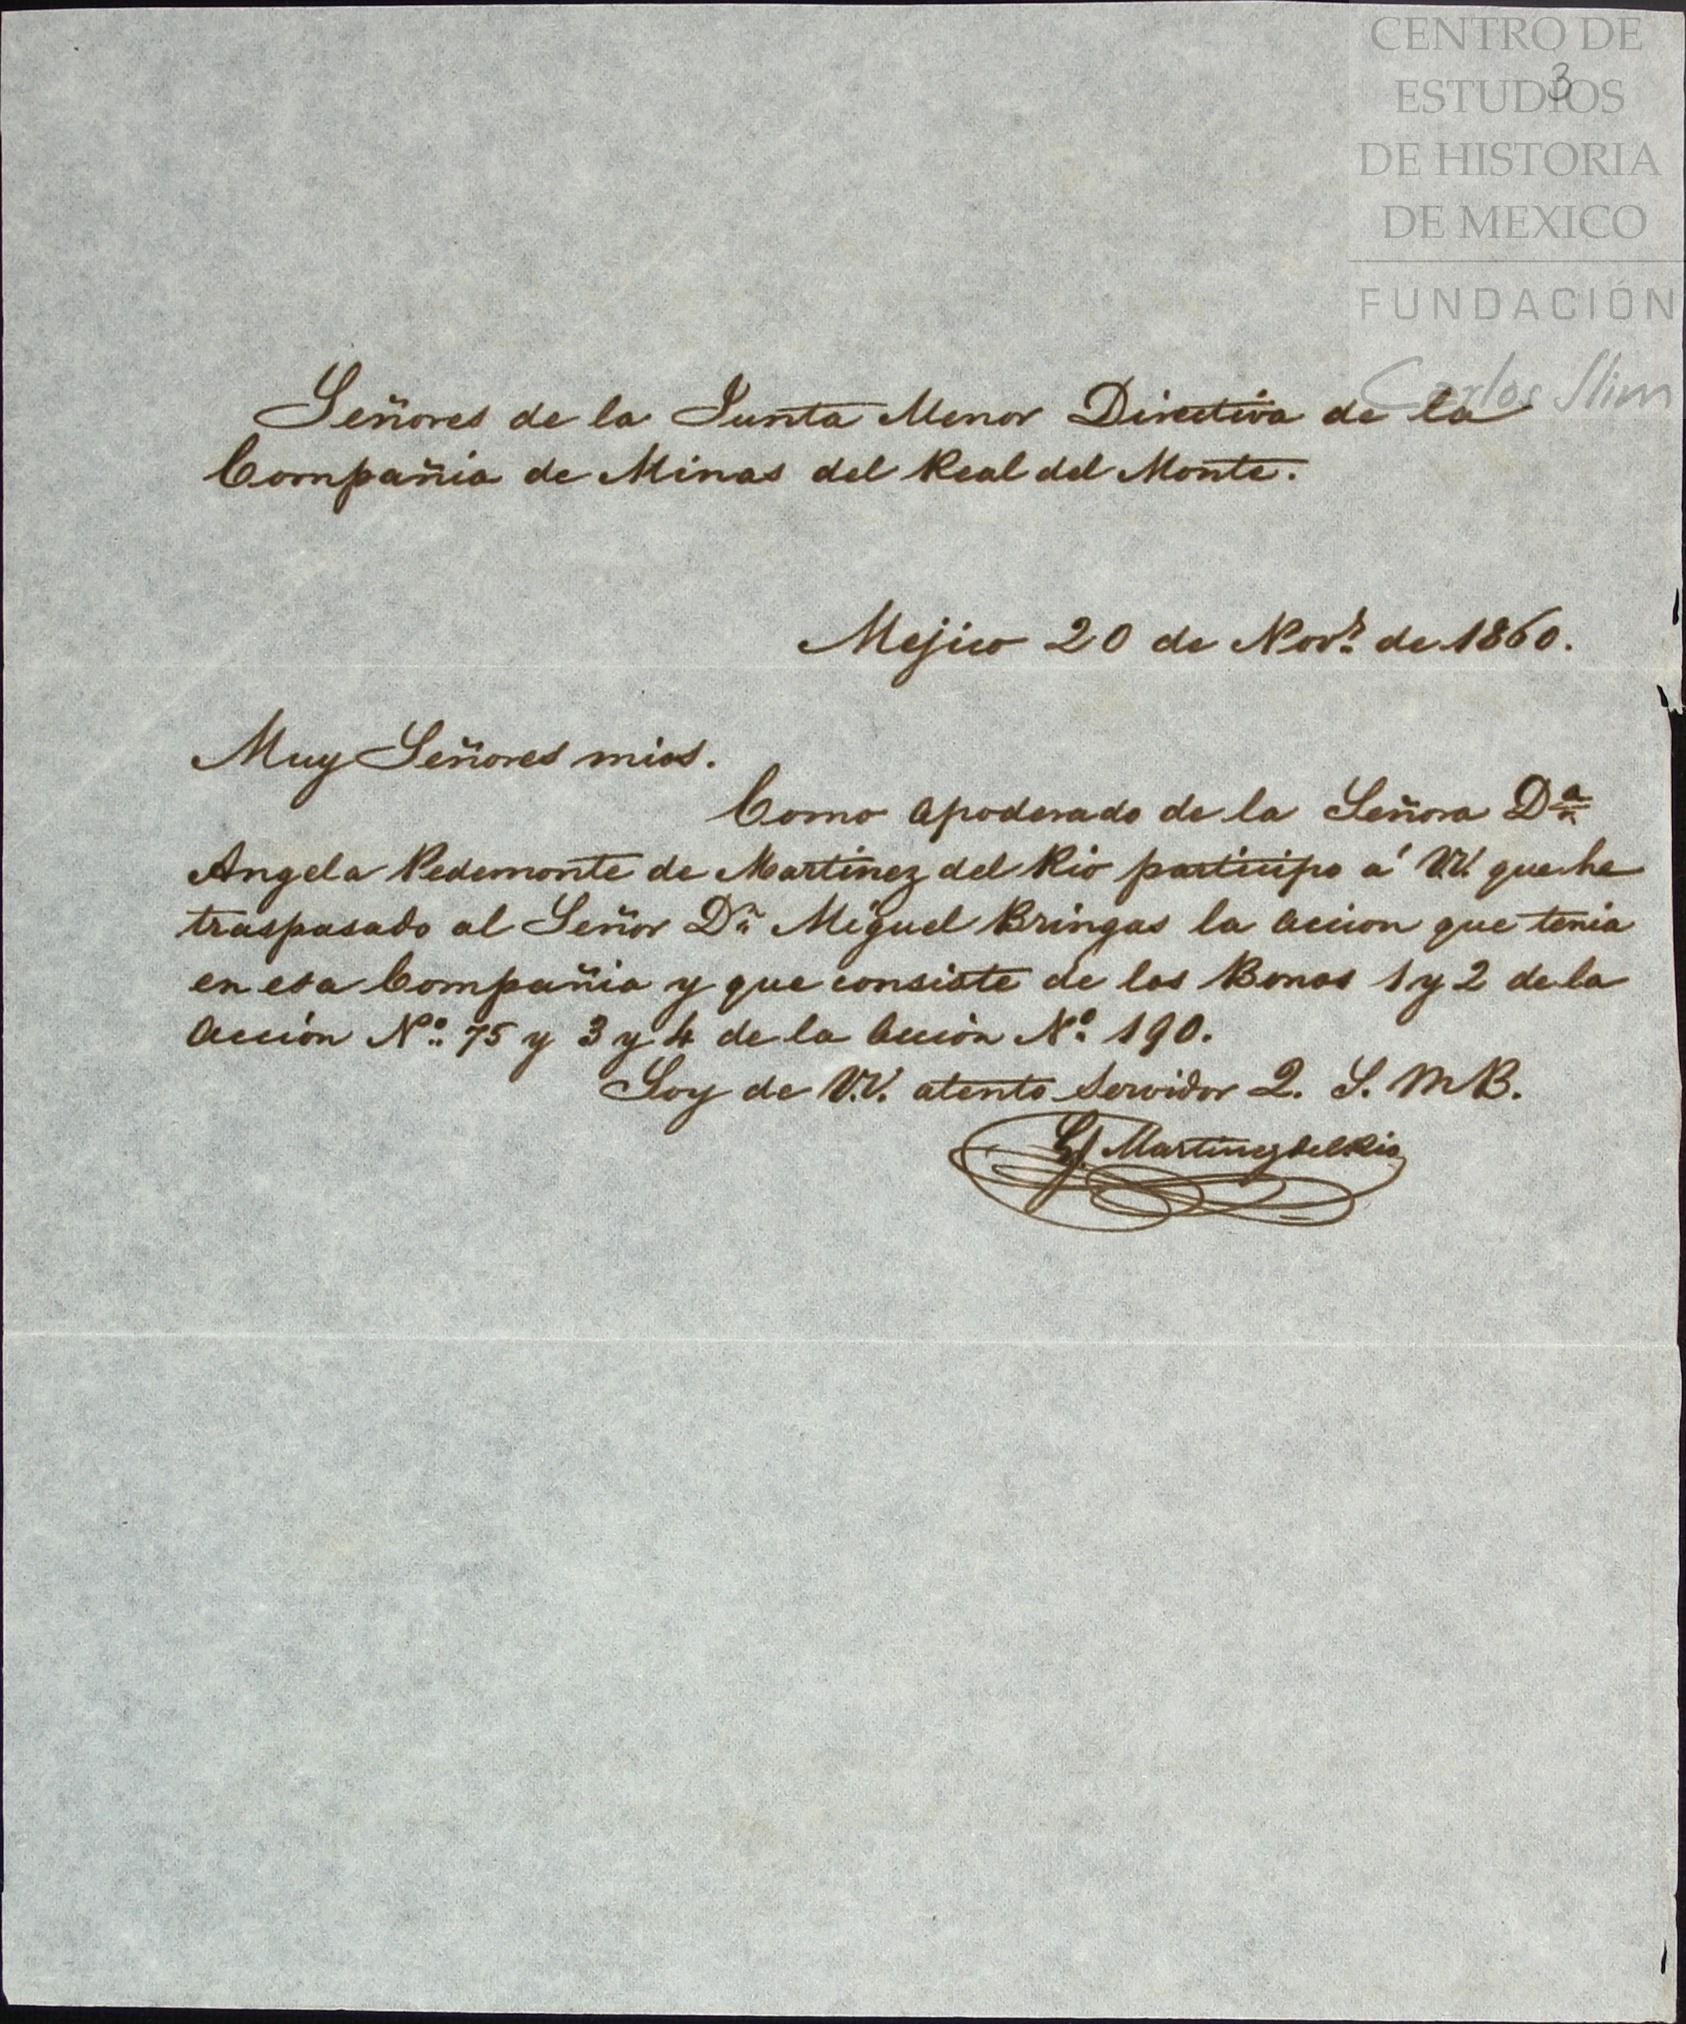 CENTRO DE
3
ESTUDIOS
DE HISTORIA
DE MEXICO
FUNDACIÓN
Carlos Slim
Señores de la Junta Menor Directiva de la
Compañia de Minas del Real del Monte.
Mejico 20 de Novr. de 1860.
Muy Señores mios.
Como apoderado de la Señora Dña.
Angela Pedemonte de Martinez del Rio participo á VV. que he
traspasado al Señor Dn. Miguel Bringas la accion que tenia
en esa Compañia y que consiste de los Bonos 1 y 2 de la
acción No. 75 y 3 y 4 de la acción No. 190.
Soy de V.V. atento servidor Q. S. M B.
Martinez del Rio